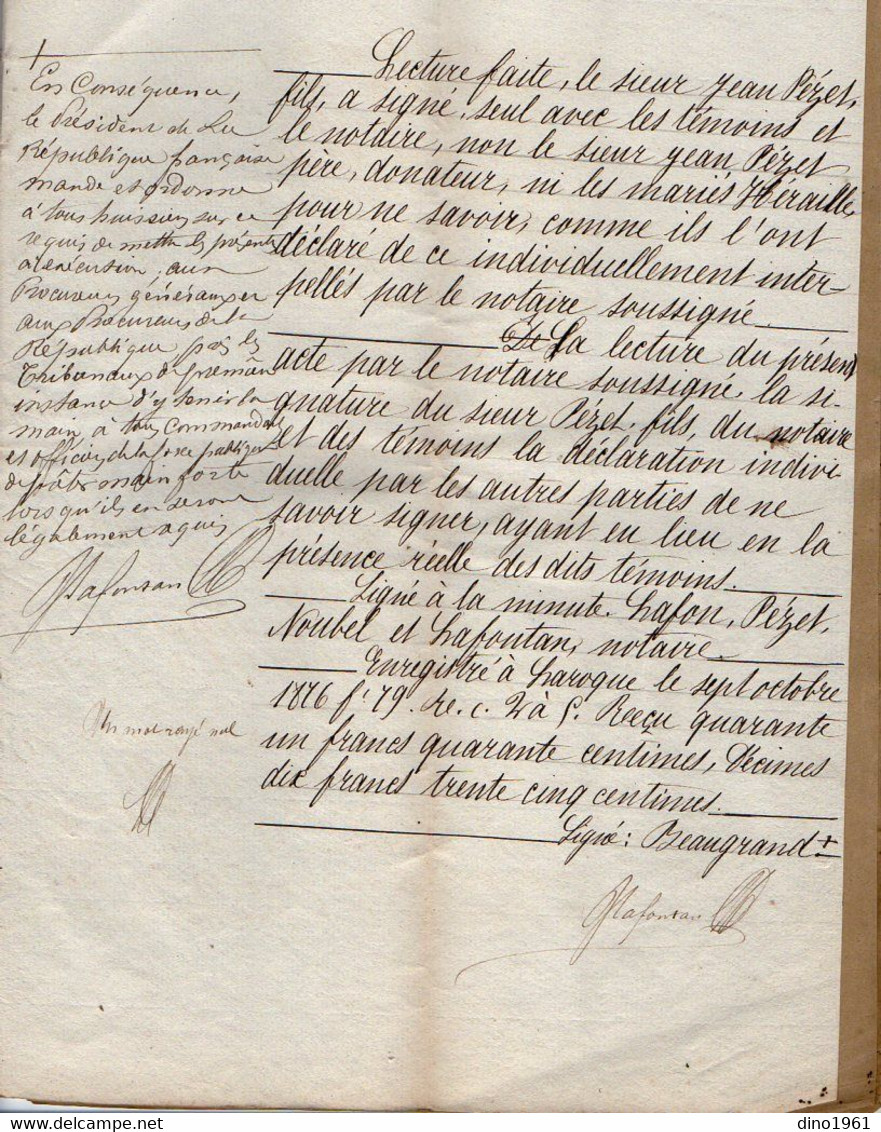 Lecture faite, le sieur Jean Pézet,
fils, a signé, seul avec les témoins et
le notaire, non le sieur Jean Pézet
père, donateur, ni les mariés Héraille,
pour ne savoir, comme ils l'ont
déclaré de ce individuellement inter-
pellés par le notaire soussigné.
La lecture du présent
acte par le notaire soussigné, la si-
gnature du sieur Pézet, fils, du notaire
et des témoins la déclaration indivi
duelle par les autres parties de ne
savoir signer, ayant eu lieu en la
présence réelle des dits témoins.
Signé à la minute. Lafon, Pézet,
Noubel et Lafontan, notaire.
Enregistré à Laroque le sept octobre
1876 fo 79. Ro. c. 2 à 5. Reçu quarante
un francs quarante centimes, Décimes
dix francs trente cinq centimes.
Signé: Beaugrand +
Lafontan
+
En Conséquence,
le Président de La
République française
mande et ordonne
à tous huissiers sur ce
requis de mettre les présentes
à exécution; aux
Procureurs généraux et
aux Procureurs de la
République près les
Tribunaux de première
instance d'y tenir la
main, à tous commandants
et officiers de la force publique
de prêter main forte
lorsqu'ils en seront
légalement requis
Lafontan
Un mot rayé nul
dino1961